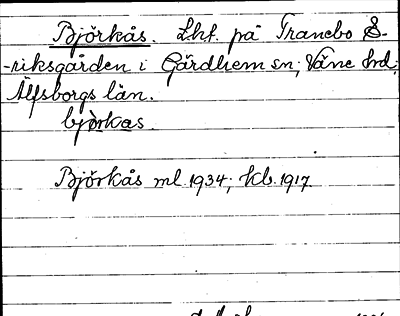 Björkås. Lht. på Tranebo E-
-riksgården i Gärdhem sn, Väne hd,
Älfsborgs län.
björkas.
Björkås ml. 1934; kb. 1917